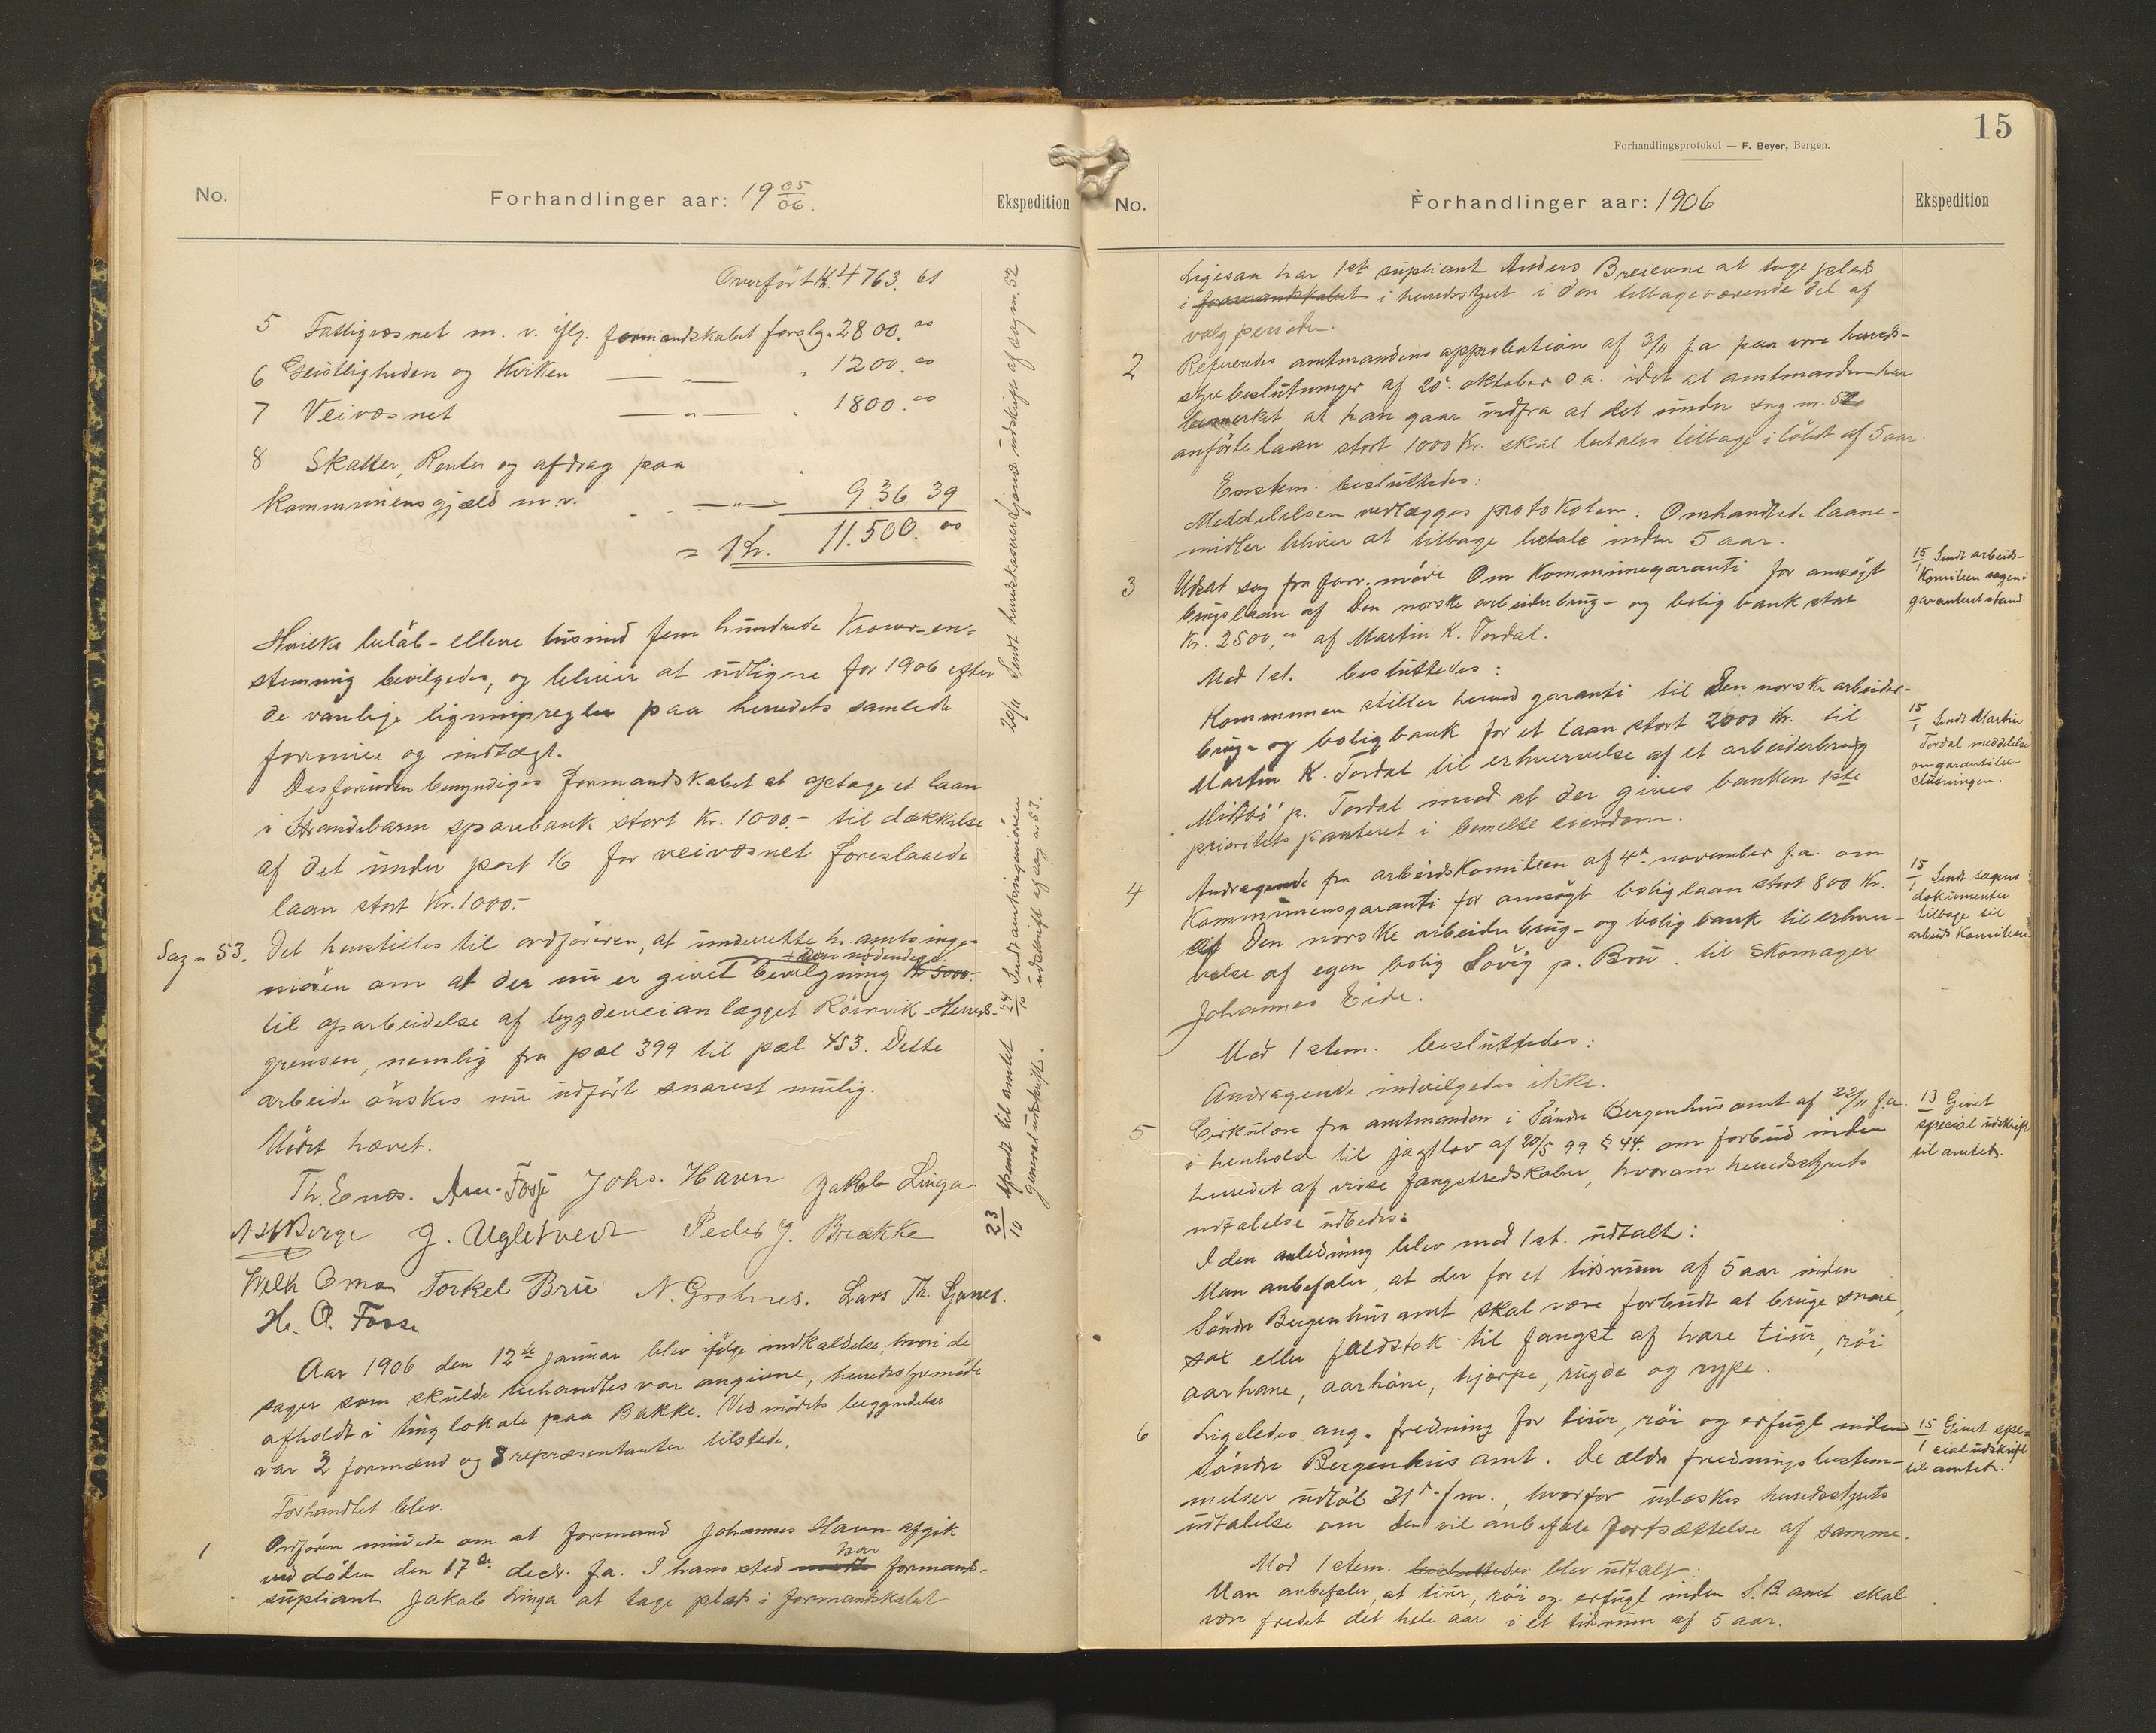 No.
Forhandlinger aar: 19 05/06.
Ekspedition
Overført Kr. 4763. 61
5 Fattigvæsnet m. v. iflg. formandskabet forslg. 2800.00
6 Geistligheden og Kirken — " — " 1200.00
7 Veivæsnet — " — " 1800.00
8 Skatter, Renter og afdrag paa
Kommunens gjæld m. v. — " — 936 39
= Kr. 11.500.00
Hvilke beløb - elleve tusind fem hundrede Kroner - en-
stemmig bevilgedes, og bliver at udligne for 1906 efter
de vanlige ligningsregler paa herredets samlede
formue og indtægt.
Desforuden bemyndiges formandskabet at optage et laan
i Strandebarm sparebank stort Kr. 1000.- til dækkelse
af det under post 16 for veivæsnet foreslaaede
laan stort Kr. 1000.-
Sag n 53. Det henstilles til ordføreren, at underrette hr. amtsinge-
niøren om at der nu er givet den nødvendige bevilgning Kr 5000.-
til oparbeidelse af bygdeveianlægget Røinvik - Herreds-
grensen, nemlig fra pæl 399 til pæl 453. Dette
arbeide ønskes nu udført snarest mulig.
Mødet hævet.
Th. Enæs. Am. Fosse Johs. Havn Jakob Linga
N H Berge J. Ugletvedt Peder J. Brække
Wilh Oma Torkel Bru N. Grotnes. Lars Th. Sjonnes.
H. O. Fosse
Aar 1906 den 12te januar blev ifølge indkaldelse, hvori de
sager som skulde behandles var angivne, herredsstyremøde
afholdt i tinglokale paa Bakke. Ved mødets begyndelse
var 3 formænd og 8 repræsentanter tilstede.
Forhandlet blev.
1 Ordføren mindede om at formand Johannes Havn afgik
ved døden den 17de decbr. f.a. I hans sted har formands-
supliant Jakob Linga at tage plads i formandskabet
20/11 Sendt herredskasserer udskrift af sag nr. 52
24/10 Sendt amtsingeniøren
udskrift af sag nr 53.
23/10 Spendt til amtet
generaludskrift.
15
Forhandlingsprotokol — F. Beyer, Bergen.
No.
Forhandlinger aar: 1906
Ekspedition
Ligesaa har 1ste supliant Anders Breievne at tage plads
i formandskabet i herredsstyret i den tilbageværende del af
valgperioden.
2 Refereredes amtmandens approbation af 3/11 f.a. paa vore herreds-
styrebeslutninger af 20. oktober s.a. idet at amtmanden har
bemerket at han gaar udfra at det under sag nr. 52
anførte laan stort 1000 Kr. skal betales tilbage i løbet af 5 aar.
Enstem. besluttedes:
Meddelelsen vedlægges protokolen. Omhandlede laane-
midler bliver at tilbage betale inden 5 aar.
3 Udsat sag fra forr. møde Om Kommunegaranti for ansøgt
brugslaan af Den norske arbeiderbrug- og boligbank stort
Kr. 2500,00 af Martin K. Tordal.
Med 1 st. besluttedes:
Kommunen stiller herved garanti til Den norske arbeider-
brug- og boligbank for et laan stort 2000 Kr. til
Martin K. Tordal til erhvervelse af et arbeiderbrug
Midtbø p. Tordal imod at der gives banken 1ste
prioritets panteret i bemelte eiendom.
4 Andragende fra arbeidskomiteen af 4de november f.a. om
Kommunensgaranti for ansøgt boliglaan stort 800 Kr.
af Den norske arbeiderbrug- og boligbank til erhver-
velse af egen bolig Løvig p. Bru. til skomager
Johannes Eide.
Med 1 stem. besluttedes:
Andragende indvilgedes ikke.
5 Cirkulære fra amtmanden i Søndre Bergenhus amt af 22/11 f.a.
i henhold til jagtlov af 20/5 99 § 44. om forbud inden
herredet af visse fangstredskaber, hvorom herredsstyrets
udtalelse udbedes.
I den anledning blev med 1 st. udtalt:
Man anbefaler, at der for et tidsrum af 5 aar inden
Søndre Bergenhus amt skal være forbudt at bruge snare,
sax eller faldstok til fangst af hare tiur, røi
aarhane, aarhøne, hjærpe, rugde og rype.
6 Ligeledes ang. fredning for tiur, røi og erfugl inden
Søndre Bergenhus amt. De ældre fredningsbestem-
melser udløb 31te f.m., hvorfor udæskes herredsstyrets
udtalelse om den vil anbefale fortsættelse af samme.
Med 1 stem. besluttedes blev udtalt:
Man anbefaler, at tiur, røi og erfugl inden S. B. amt skal
være fredet det hele aar i et tidsrum af 5 aar.
15/1 Sendt arbeids-
komiteen sagen i
garanteret stand.
15/1 Sendt Martin
Tordal meddelelse
om garantibe-
slutningen.
15/1 Sendt sagens
dokumenter
tilbage til
arbeids komiteen
13 Givet
special udskrift
til amtet.
15/1 Givet spe-
cialudskrift
til amtet.